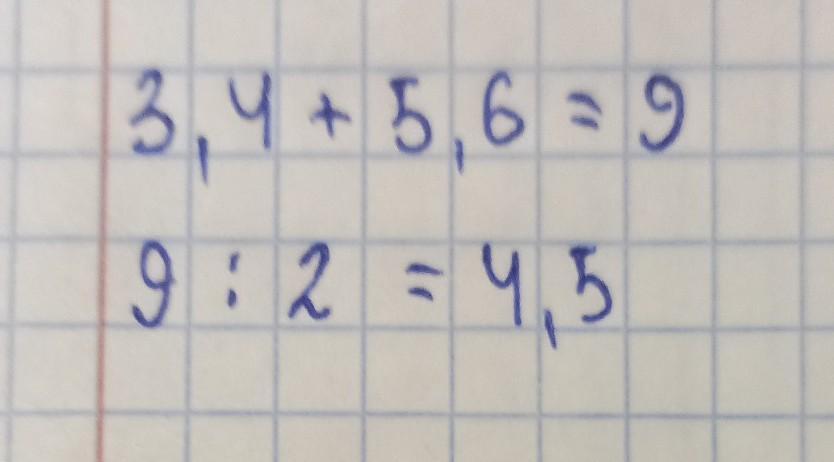 3,4 + 5,6 = 9
9 : 2 = 4,5